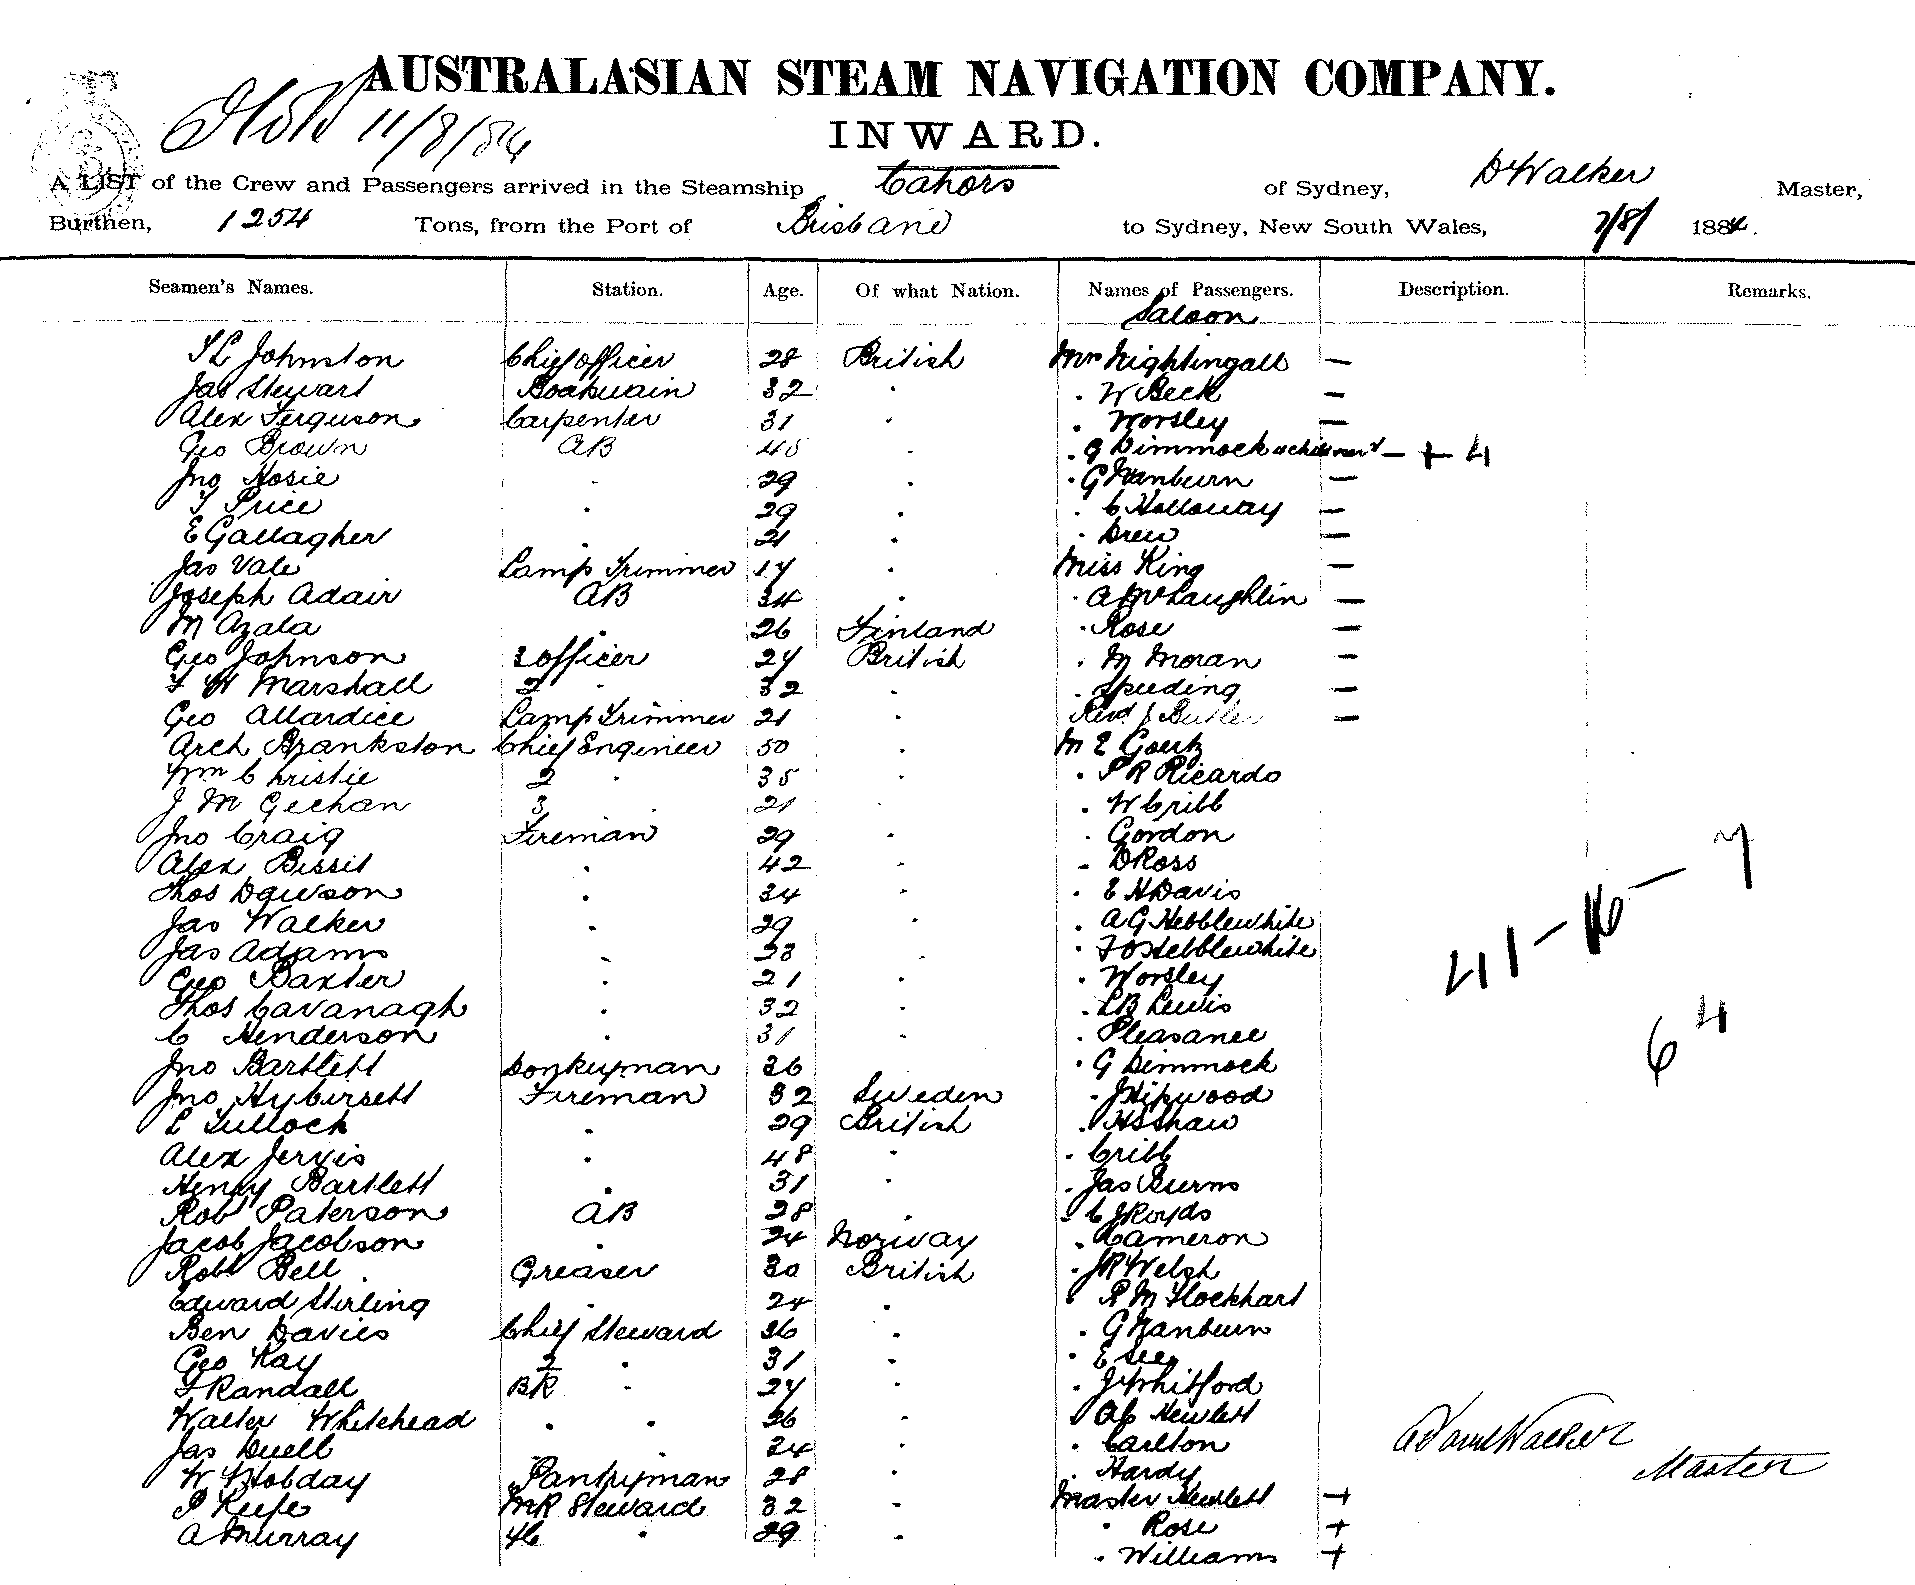 AUSTRALASIAN STEAM NAVIGATION COMPANY.
11/8/84
INWARD.
A LIST of the Crew and Passengers arrived in the Steamship Cahors of Sydney, D Walker Master,
Burthen, 1254 Tons, from the Port of Brisbane to Sydney, New South Wales, 7/8/ 1884.
Seamen's Names. Station. Age. Of what Nation. Names of Passengers. Description. Remarks.
Saloon
Johnston Chief officer 28 British Mrs Nightingall —
Jas Stewart Boatswain 32 . . W Beck —
Alex Ferguson Carpenter 31 . . Worsley —
Geo Brown AB 45 . . G Dimmock — + 4
Jno Hosie . 29 . . G Manburn —
T Price . 29 . . C Holloway —
E Gallagher . 21 . . Drew —
Jas Vale Lamp Trimmer 17 . Miss King —
Joseph Adair AB 34 . . A McLaughlin —
M Azala . 26 Finland . Rose —
Geo Johnson 3 officer 27 British . M Moran —
F W Marshall 2 . 32 . . Speeding —
Geo Allardice Lamp Trimmer 21 . Revd J Butler —
Arch Brankston Chief Engineer 50 . M E Goertz
Wm Christie 2 . 35 . . P R Ricardo
J McGeehan 3 . 21 . . W Cribb
Jno Craig Fireman 29 . . Gordon
Alex Bissit . 42 . . D Ross
Thos Dawson . 34 . . E H Davis
Jas Walker . 29 . . A G Hebblewhite
Jas Adams . 23 . . F O Hebblewhite
Geo Baxter . 21 . . Worsley
Thos Cavanagh . 32 . . L B Lewis
C Henderson . 31 . . Pleasance
Jno Bartlett Donkeyman 36 . . G Dimmock
Jno Hybirsett Fireman 32 Sweden . J Hipwood
L Tulloch . 29 British . H S Shaw
Alex Jervis . 48 . . Cribb
Henry Bartlett . 31 . . Jas Burns
Rob Paterson AB 28 . . C J Royds
Jacob Jacobson . 24 Norway . Cameron
Robt Bell Greaser 30 British . J R Welsh
Edward Stirling . 24 . . R M Flockhart
Ben Davies Chief Steward 36 . . G Manburn
Geo Kay 2 . 31 . . E See
F Randall BR . 27 . . J Whitford
Walter Whitehead . . 26 . . A C Hewlett
Jas Duell . 34 . . Carlton
W Hobday Pantryman 28 . . Hardy
P Keefe MR Steward 32 . Master Hewlett +
A Murray FC . 29 . . Rose +
. Williams +
41 — 16 — 7
64
David Walker
Master